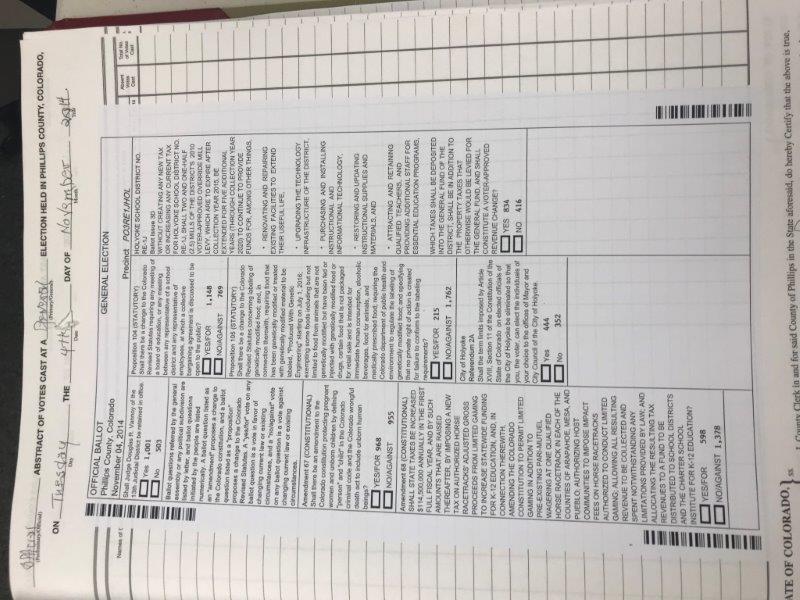 Official
ABSTRACT OF VOTES CAST AT A General ELECTION HELD IN PHILLIPS COUNTY, COLORADO,
(Preliminary/Official)
(Primary/General)
ON Tuesday THE 4th DAY OF November 2014
Day
Names of
Precinct PO3REI/HOL
Absent Votes Cast
Total No. of Votes Cast
OFFICIAL BALLOT
Phillips County, Colorado
November 04, 2014
GENERAL ELECTION
Shall Judge Douglas R. Vannoy of the
13th Judicial District be retained in office.
Yes 1,001
No 503
Ballot questions referred by the general
assembly or any political subdivision are
listed by letter, and ballot questions
initiated by the people are listed
numerically. A ballot question listed as
an "amendment" proposes a change to
the Colorado constitution, and a ballot
question listed as a "proposition"
proposes a change to the Colorado
Revised Statutes. A "yes/for" vote on any
ballot question is a vote in favor of
changing current law or existing
circumstances, and a "no/against" vote
on any ballot question is a vote against
changing current law or existing
circumstances.
Amendment 67 (CONSTITUTIONAL)
Shall there be an amendment to the
Colorado constitution protecting pregnant
women and unborn children by defining
"person" and "child" in the Colorado
criminal code and the Colorado wrongful
death act to include unborn human
beings?
YES/FOR 968
NO/AGAINST 955
Amendment 68 (CONSTITUTIONAL)
SHALL STATE TAXES BE INCREASED
$114,500,000 ANNUALLY IN THE FIRST
FULL FISCAL YEAR, AND BY SUCH
AMOUNTS THAT ARE RAISED
THEREAFTER, BY IMPOSING A NEW
TAX ON AUTHORIZED HORSE
RACETRACKS' ADJUSTED GROSS
PROCEEDS FROM LIMITED GAMING
TO INCREASE STATEWIDE FUNDING
FOR K-12 EDUCATION, AND, IN
CONNECTION THEREWITH,
AMENDING THE COLORADO
CONSTITUTION TO PERMIT LIMITED
GAMING IN ADDITION TO
PRE-EXISTING PARI-MUTUEL
WAGERING AT ONE QUALIFIED
HORSE RACETRACK IN EACH OF THE
COUNTIES OF ARAPAHOE, MESA, AND
PUEBLO; AUTHORIZING HOST
COMMUNITIES TO IMPOSE IMPACT
FEES ON HORSE RACETRACKS
AUTHORIZED TO CONDUCT LIMITED
GAMING; ALLOWING ALL RESULTING
REVENUE TO BE COLLECTED AND
SPENT NOTWITHSTANDING ANY
LIMITATIONS PROVIDED BY LAW; AND
ALLOCATING THE RESULTING TAX
REVENUES TO A FUND TO BE
DISTRIBUTED TO SCHOOL DISTRICTS
AND THE CHARTER SCHOOL
INSTITUTE FOR K-12 EDUCATION?
YES/FOR 598
NO/AGAINST 1,378
Proposition 104 (STATUTORY)
Shall there be a change to the Colorado
Revised Statutes requiring any meeting of
a board of education, or any meeting
between any representative of a school
district and any representative of
employees, at which a collective
bargaining agreement is discussed to be
open to the public?
YES/FOR 1,148
NO/AGAINST 769
Proposition 105 (STATUTORY)
Shall there be a change to the Colorado
Revised Statutes concerning labeling of
genetically modified food; and, in
connection therewith, requiring food that
has been genetically modified or treated
with genetically modified material to be
labeled, "Produced With Genetic
Engineering" starting on July 1, 2016;
exempting some foods including but not
limited to food from animals that are not
genetically modified but have been fed or
injected with genetically modified food or
drugs, certain food that is not packaged
for retail sale and is intended for
immediate human consumption, alcoholic
beverages, food for animals, and
medically prescribed food; requiring the
Colorado department of public health and
environment to regulate the labeling of
genetically modified food; and specifying
that no private right of action is created
for failure to conform to the labeling
requirements?
YES/FOR 215
NO/AGAINST 1,762
City of Holyoke
Referendum 2A
Shall the term limits imposed by Article
XVIII, Section 11 of the Constitution of the
State of Colorado on elected officials of
the City of Holyoke be eliminated so that
you, the voter, can elect the individuals of
your choice to the offices of Mayor and
City Council of the City of Holyoke.
Yes 464
No 352
HOLYOKE SCHOOL DISTRICT NO.
RE-1J
Ballot Issue 3D
WITHOUT CREATING ANY NEW TAX
OR INCREASING ANY CURRENT TAX
FOR HOLYOKE SCHOOL DISTRICT NO.
RE-1J, SHALL TWO AND ONE-HALF
(2.5) MILLS OF THE DISTRICT'S 2010
VOTER-APPROVED OVERRIDE MILL
LEVY, WHICH ARE TO EXPIRE AFTER
COLLECTION YEAR 2015, BE
EXTENDED FOR FIVE ADDITIONAL
YEARS (THROUGH COLLECTION YEAR
2020) TO CONTINUE TO PROVIDE
FUNDS FOR, AMONG OTHER THINGS,
* RENOVATING AND REPAIRING
EXISTING FACILITIES TO EXTEND
THEIR USEFUL LIFE,
* UPGRADING THE TECHNOLOGY
INFRASTRUCTURE OF THE DISTRICT,
* PURCHASING AND INSTALLING
INSTRUCTIONAL AND
INFORMATIONAL TECHNOLOGY,
* RESTORING AND UPDATING
INSTRUCTIONAL SUPPLIES AND
MATERIALS, AND
* ATTRACTING AND RETAINING
QUALIFIED TEACHERS, AND
PROVIDING ADDITIONAL STAFF FOR
ESSENTIAL EDUCATION PROGRAMS,
WHICH TAXES SHALL BE DEPOSITED
INTO THE GENERAL FUND OF THE
DISTRICT, SHALL BE IN ADDITION TO
THE PROPERTY TAXES THAT
OTHERWISE WOULD BE LEVIED FOR
THE GENERAL FUND, AND SHALL
CONSTITUTE A VOTER-APPROVED
REVENUE CHANGE?
YES 834
NO 416
ATE OF COLORADO, } ss
I, County Clerk in and for said County of Phillips in the State aforesaid, do hereby Certify that the above is true,